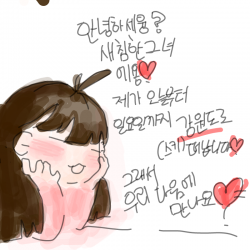 안녕하세욤?
새침한그녀
에용❤
제가 오늘부터
일요일까지 강원도로
떠납니다❤
그래서
우리 다음에
만나요❤=